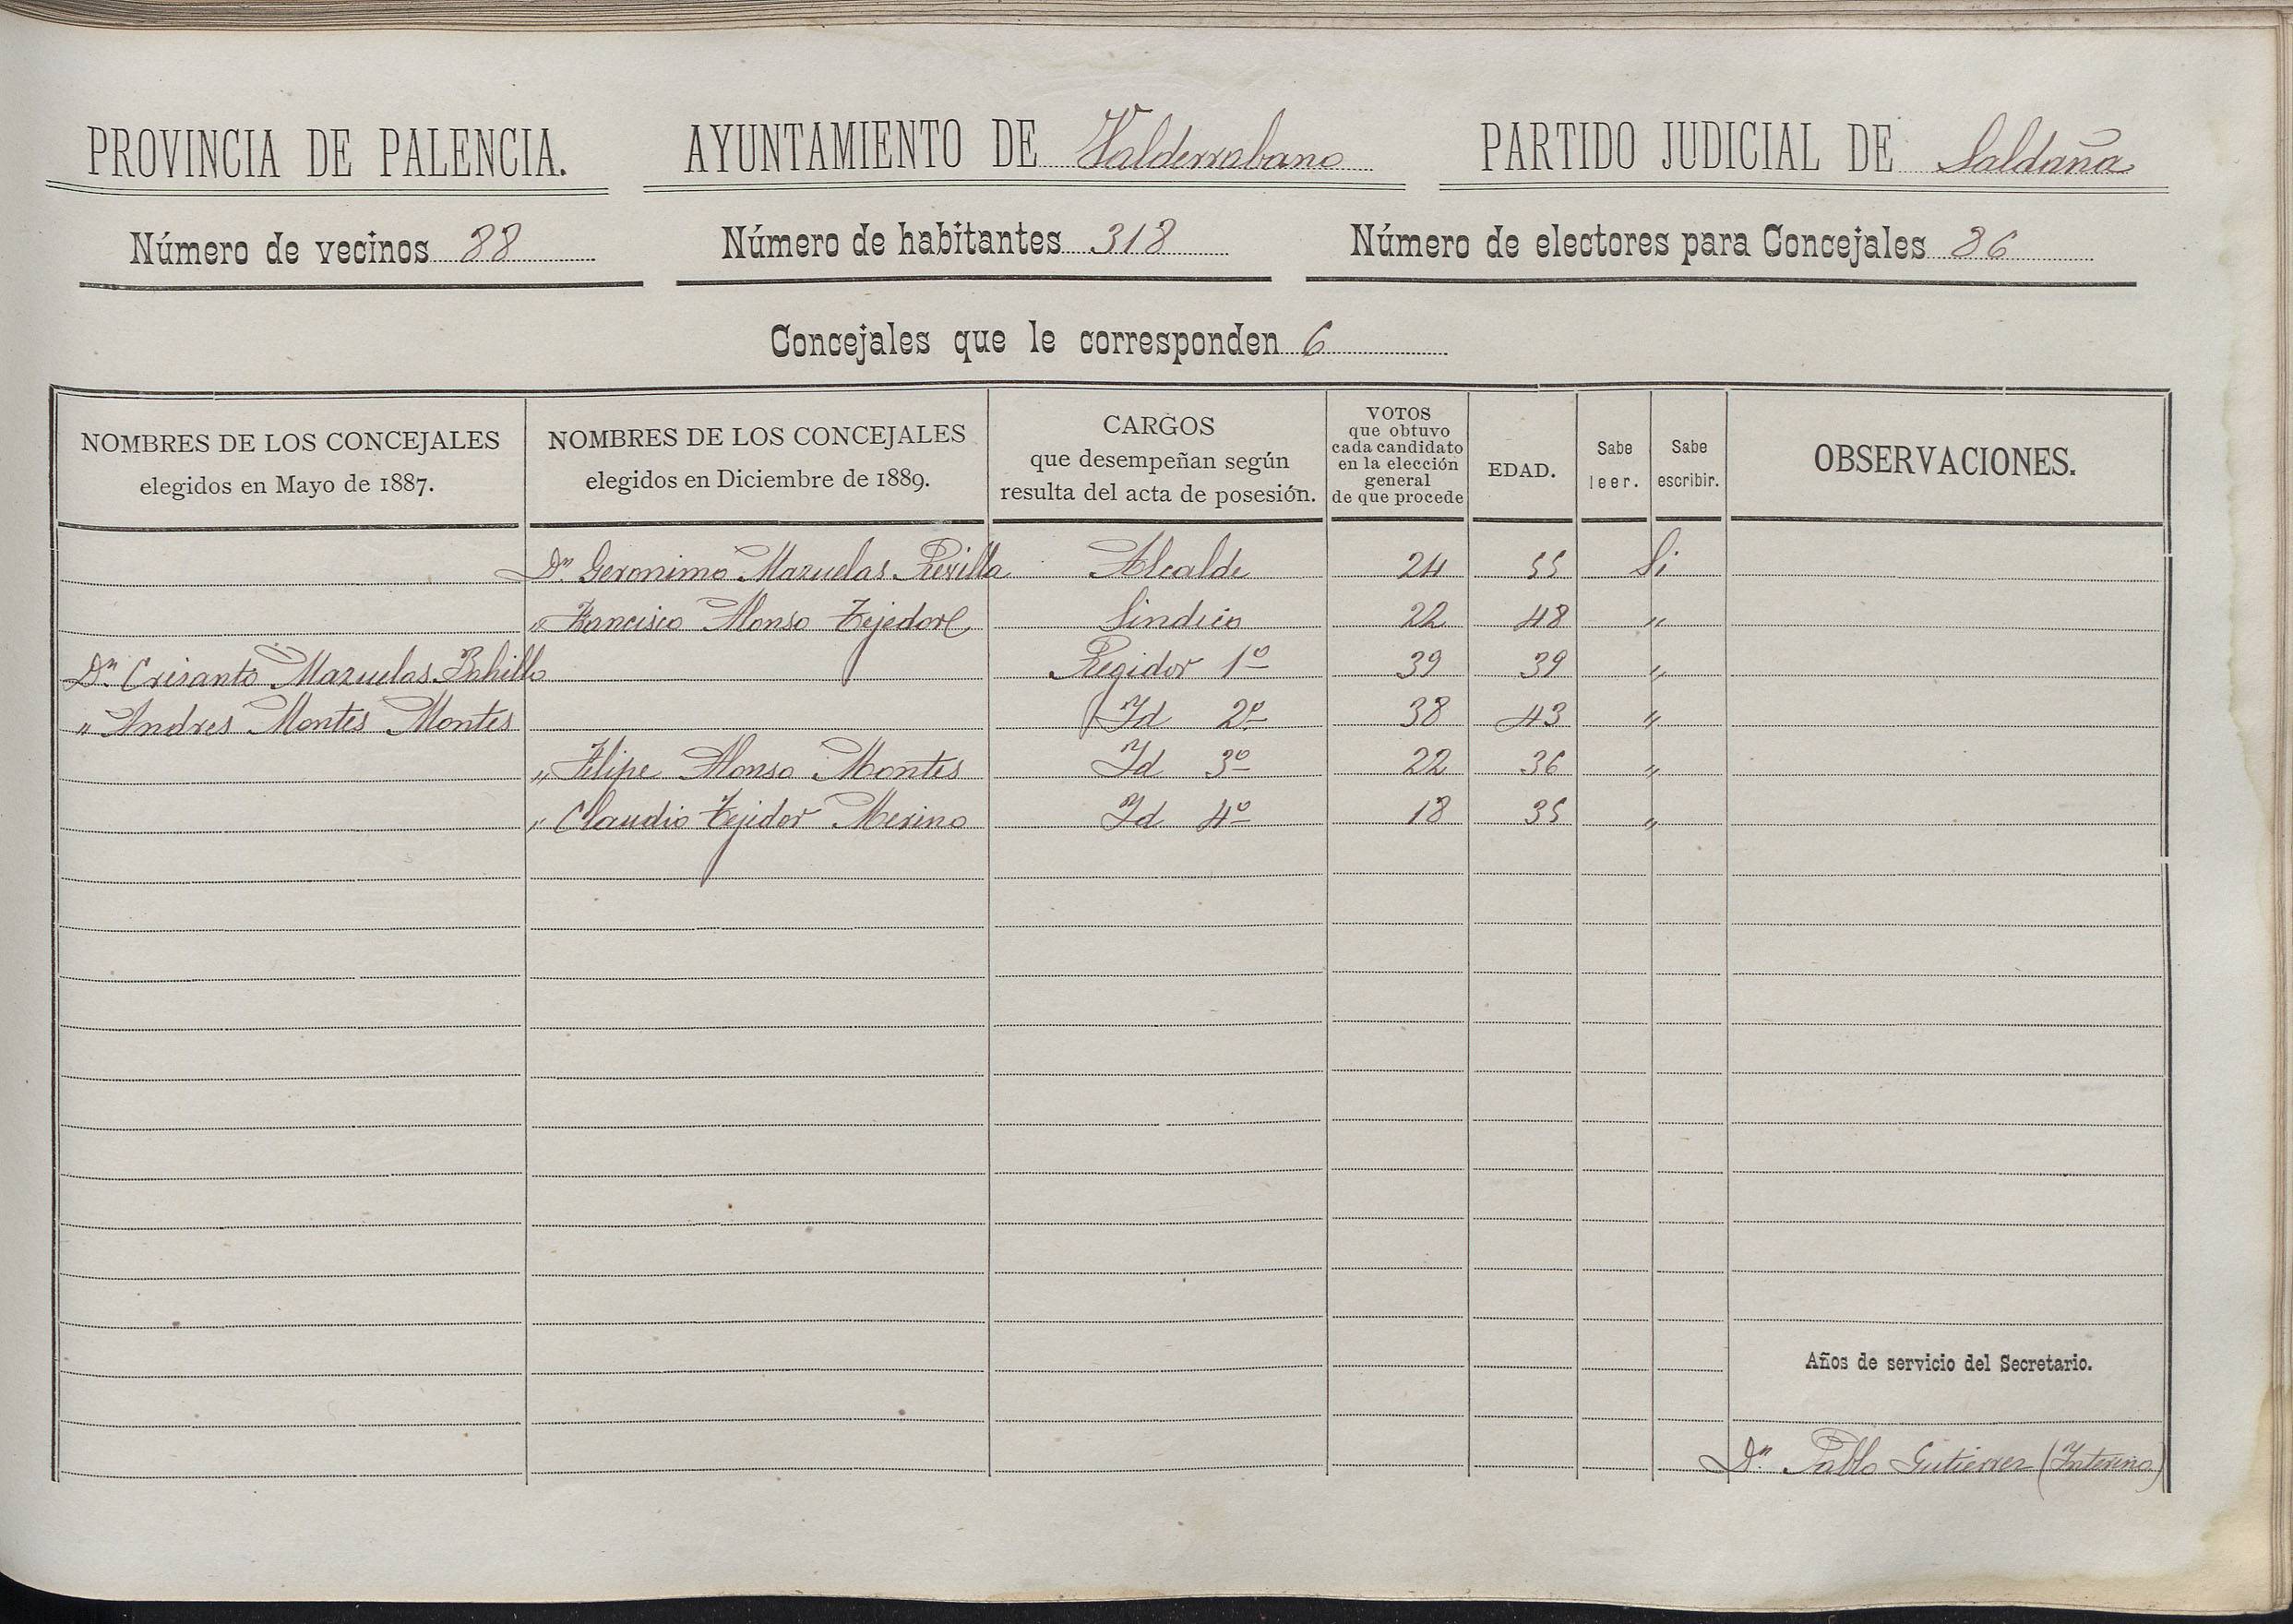 PROVINCIA DE PALENCIA. AYUNTAMIENTO DE Valderrabano PARTIDO JUDICIAL DE Saldaña
Número de vecinos 88 Número de habitantes 318 Número de electores para Concejales 86
Concejales que le corresponden 6
NOMBRES DE LOS CONCEJALES
elegidos en Mayo de 1887.
NOMBRES DE LOS CONCEJALES
elegidos en Diciembre de 1889.
CARGOS
que desempeñan según
resulta del acta de posesión.
VOTOS
que obtuvo
cada candidato
en la elección
general
de que procede
EDAD.
Sabe
leer.
Sabe
escribir.
OBSERVACIONES.
Dn Geronimo Mazuelas Revilla Alcalde 24 55 Si
" Francisco Alonso Tejedor Sindico 22 48 "
Dn Crisanto Mazuelas Bahillo Regidor 1º 39 39 "
" Andres Montes Montes Id 2º 38 43 "
" Felipe Alonso Montes Id 3º 22 36 "
" Claudio Tejedor Merino Id 4º 18 35 "
Años de servicio del Secretario.
Dn Pablo Gutierrez (Interino)